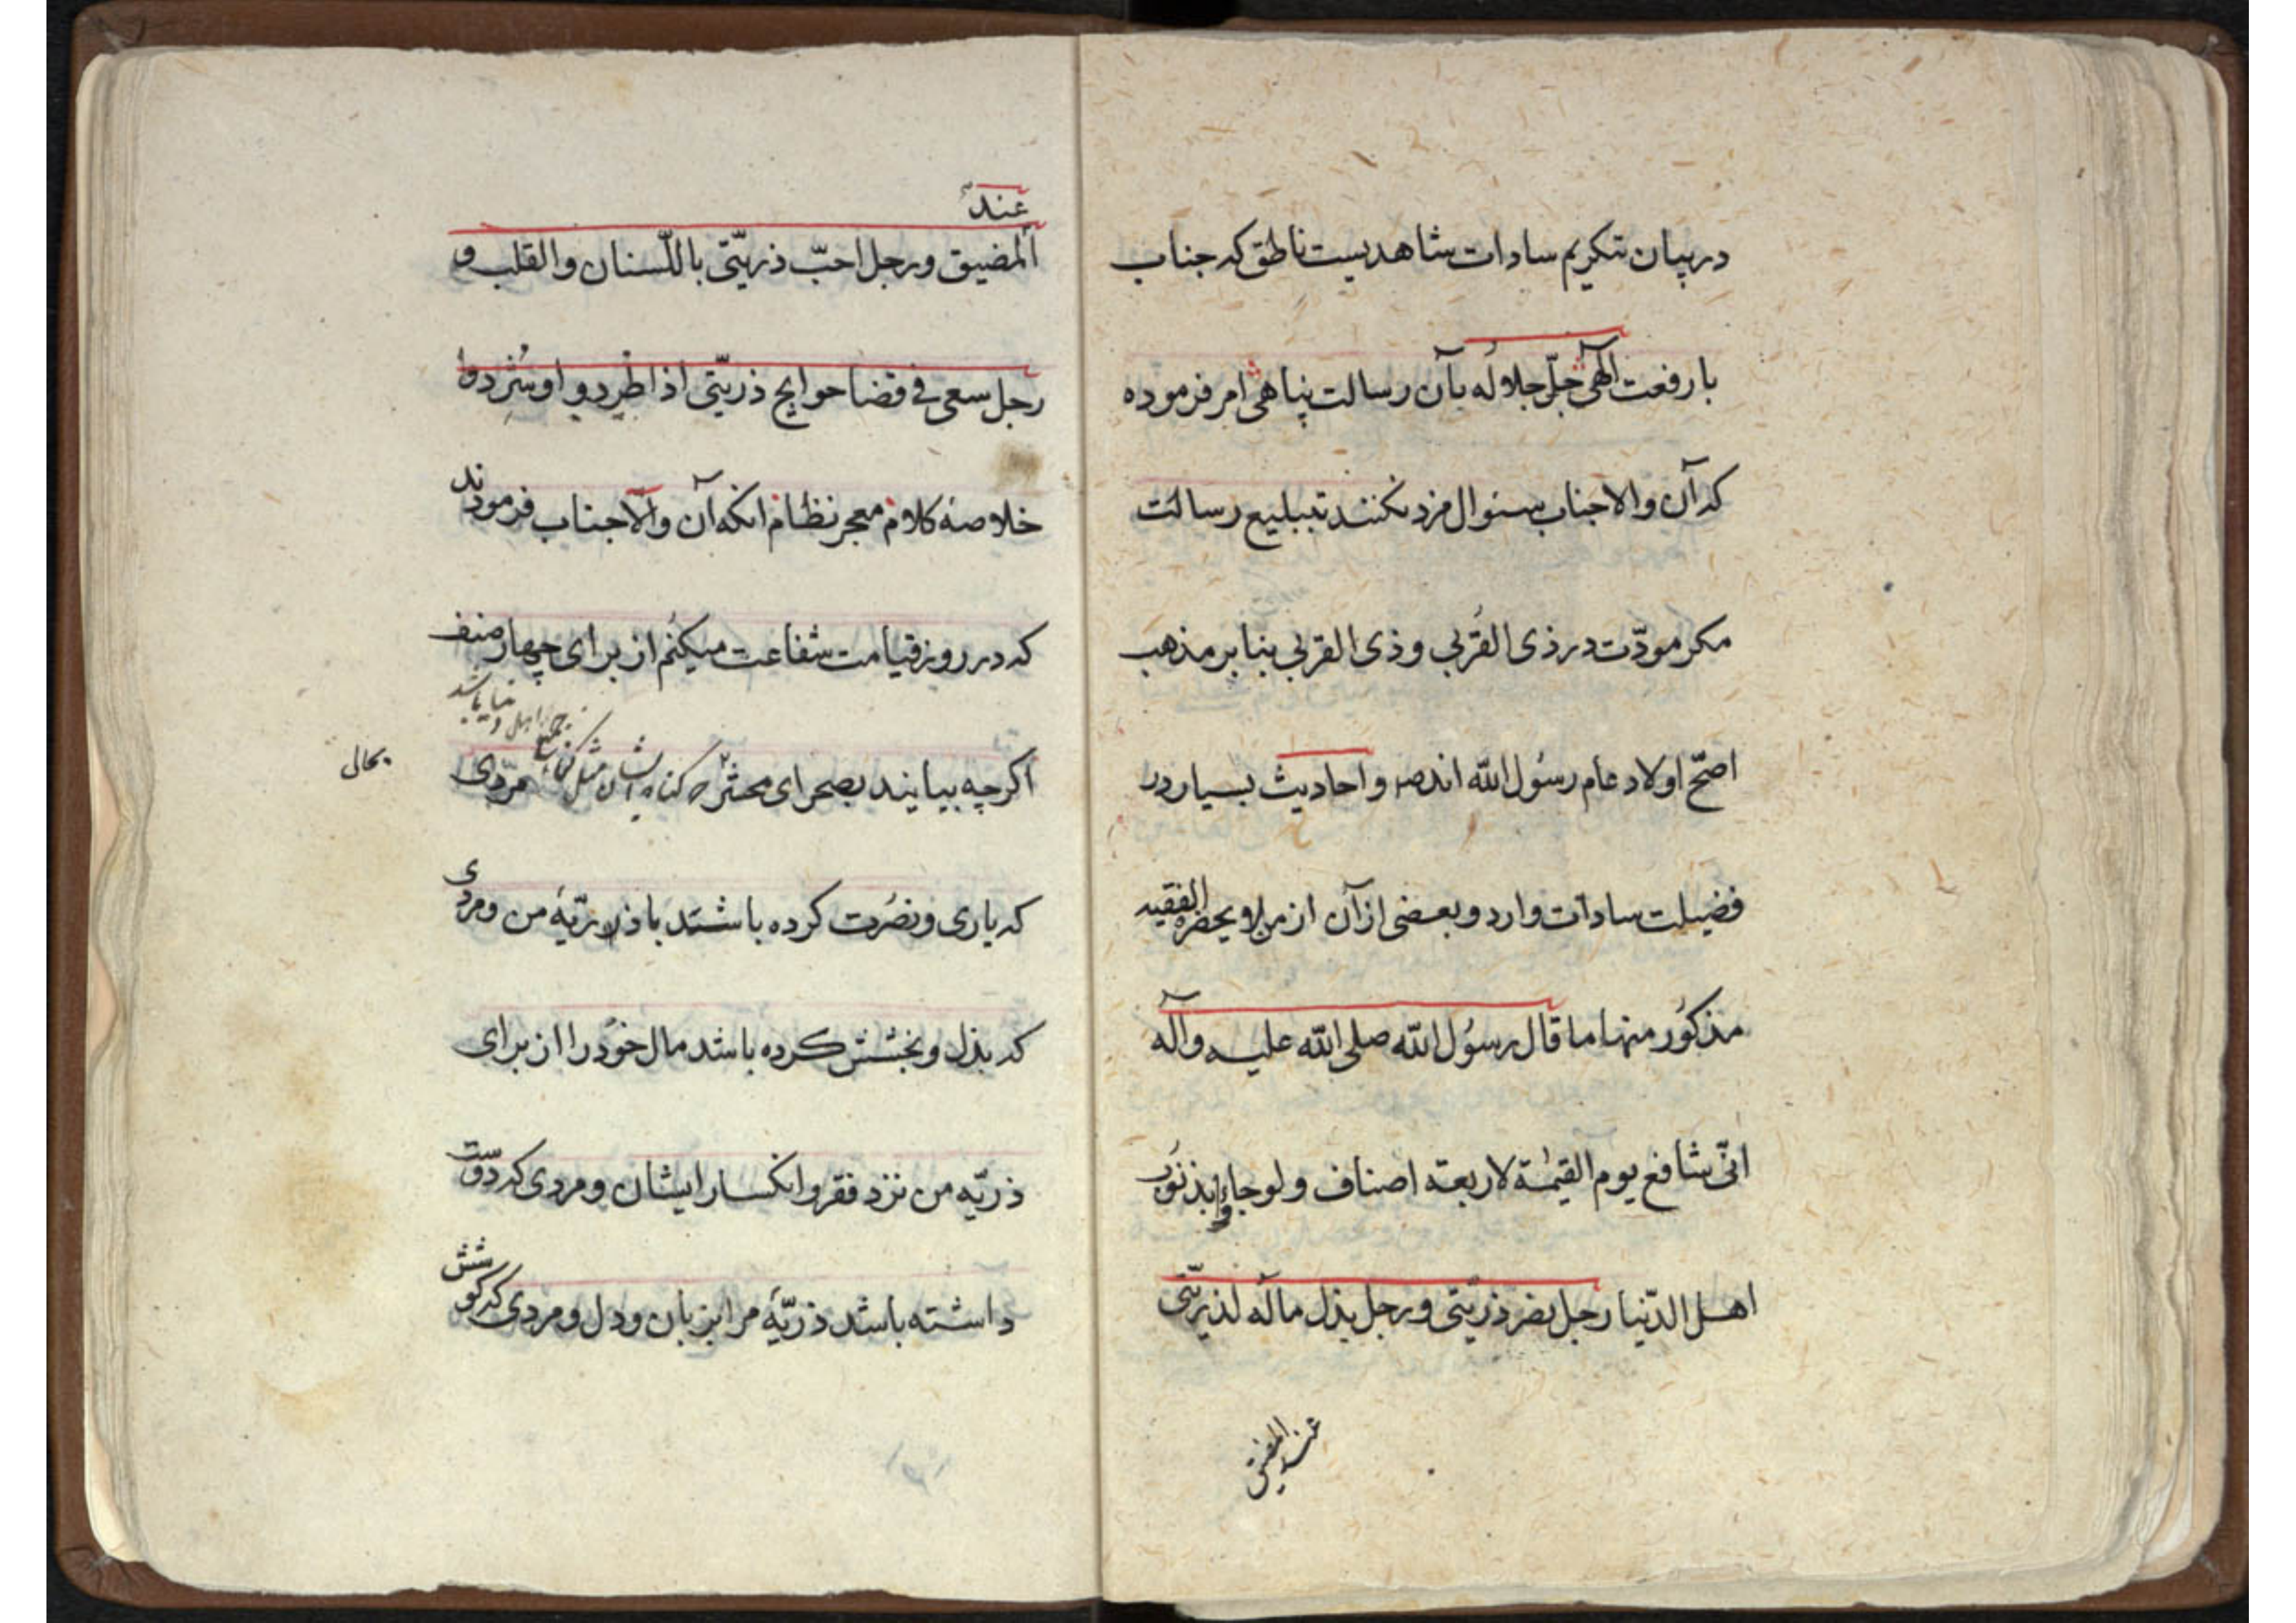 در بیان تکریم سادات شاهدیست ناطق که جناب
با رفعت آلهی جلّ جلاله بآن رسالت پناهی امر فرموده
که آن والاجناب سئوال مزد نکنند تبلیع رسالت
مکر مودّت در ذی القُربی و ذی القربی بنا بر مذهب
اصحّ اولاد عام رسُول الله اند و احادیث بسیار در
فضیلت سادات وارد و بعضی از آن از من لا یحضره الفقیه
مذکوُر منها ما قال رسوُل الله صلی الله علیه وآله
انّی شافع یوم القیٰمة لاربعة اصناف ولو جاؤا بذنوُب
اهل الدّنیا رجل نصر ذریّتی ورجل بذل ماله لذریّتی
عند المضیق
عند
المضیق ورجل احبّ ذریّتی باللّسان والقلب و
رجل سعی فی قضا حوایج ذریّتی اذا طُردوا او شُرّدوا
خلاصهٔ کلام معجز نظام انکه آن والاجناب فرمودند
که در روز قیامت شفاعت میکنُم از برای چهار صنف
اکرچه بیایند بصحرای محشر که کناه ایشان مثل کناه جمیع اهل دنیا باشد مرّدی
که یاری ونصُرت کرده باشند با ذریّهٔ من ومردی
که بذل و بخشش کرده باشد مال خوُد را از برای
ذریّه من نزد فقر و انکسار ایشان و مردی که دوّست
داشته باشد ذریّهٔ مرا بزبان و دل و مردی که کوشش